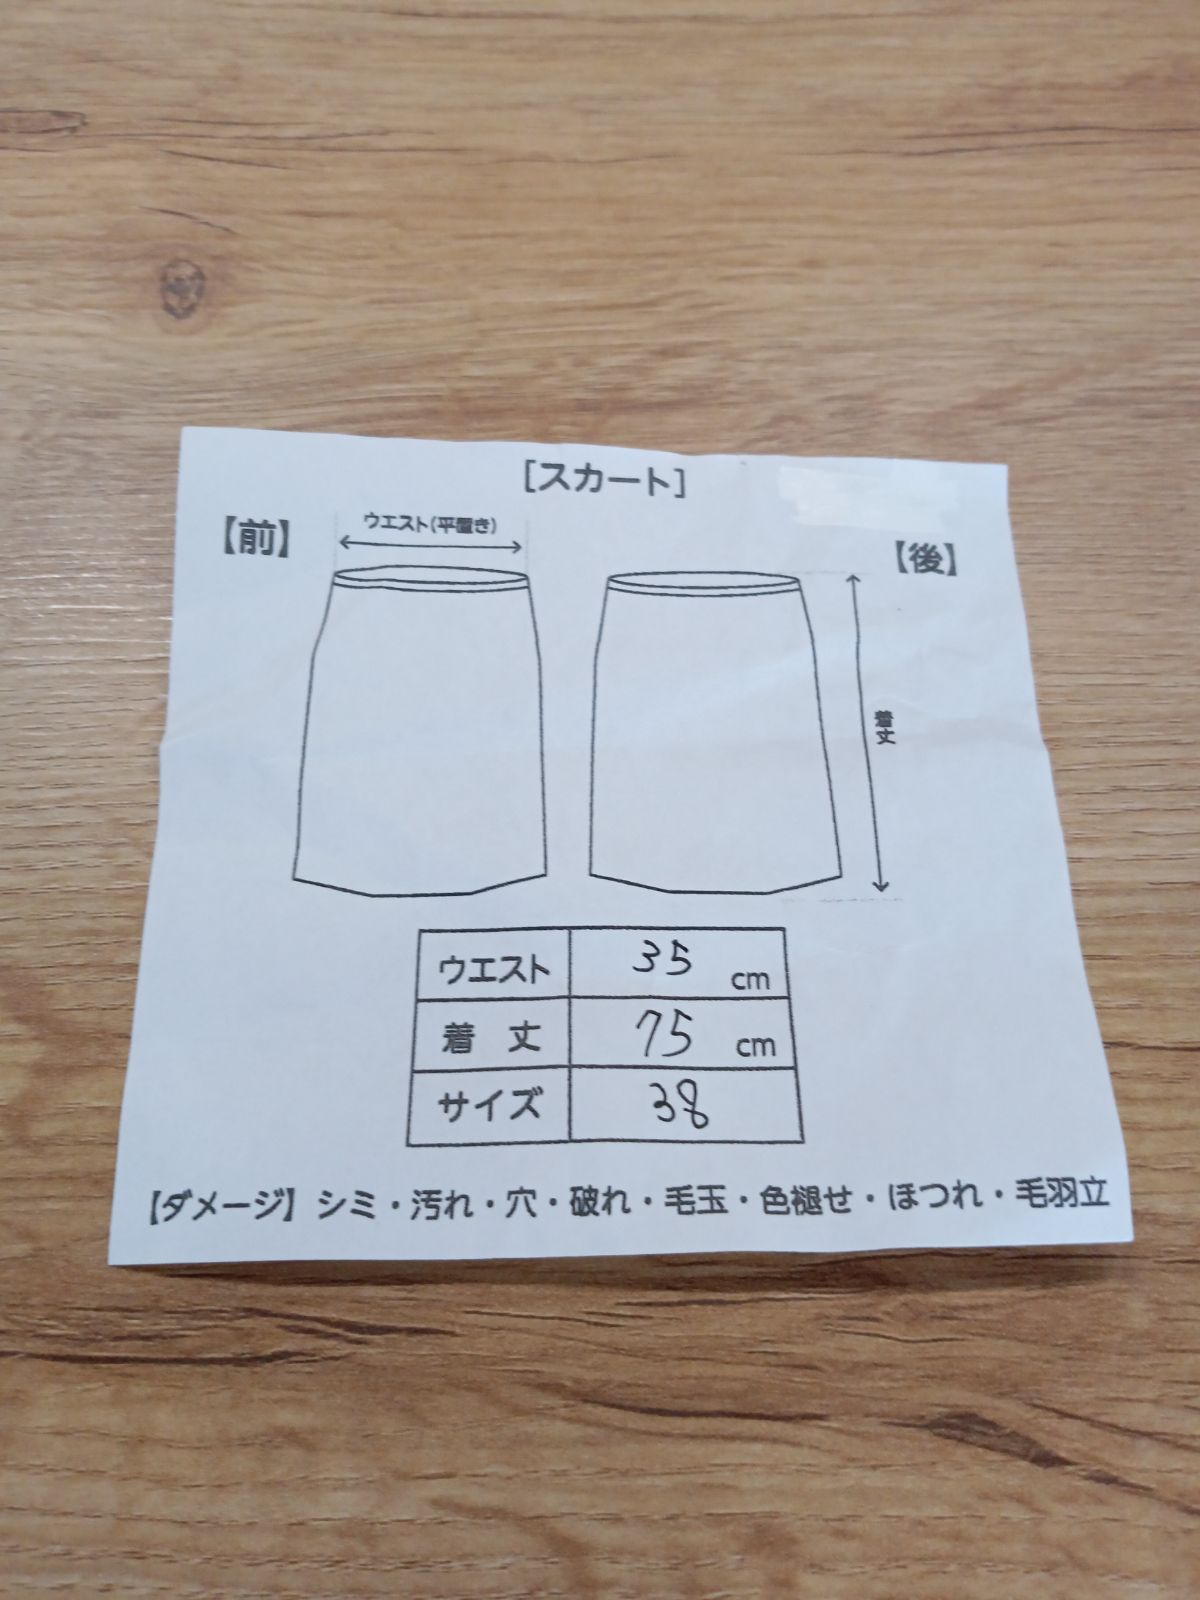 [スカート]
【前】
ウエスト(平置き)
【後】
着丈
ウエスト 35 cm
着 丈 75 cm
サイズ 38
【ダメージ】シミ・汚れ・穴・破れ・毛玉・色褪せ・ほつれ・毛羽立